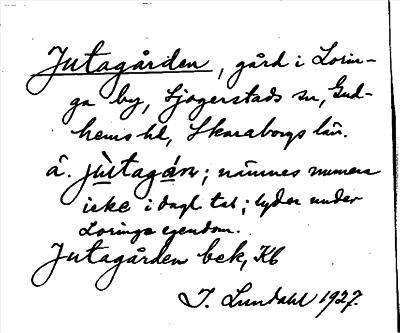 Jutagården, gård i Lorin-
ga by, Sjogerstads sn, Gud-
hems hd, Skaraborgs län.
â. jùtagán; nämnes numera
icke i dagl. tal; lyder under
Loringa egendom.
Jutagården bek, Kb
J. Lundahl 1927.